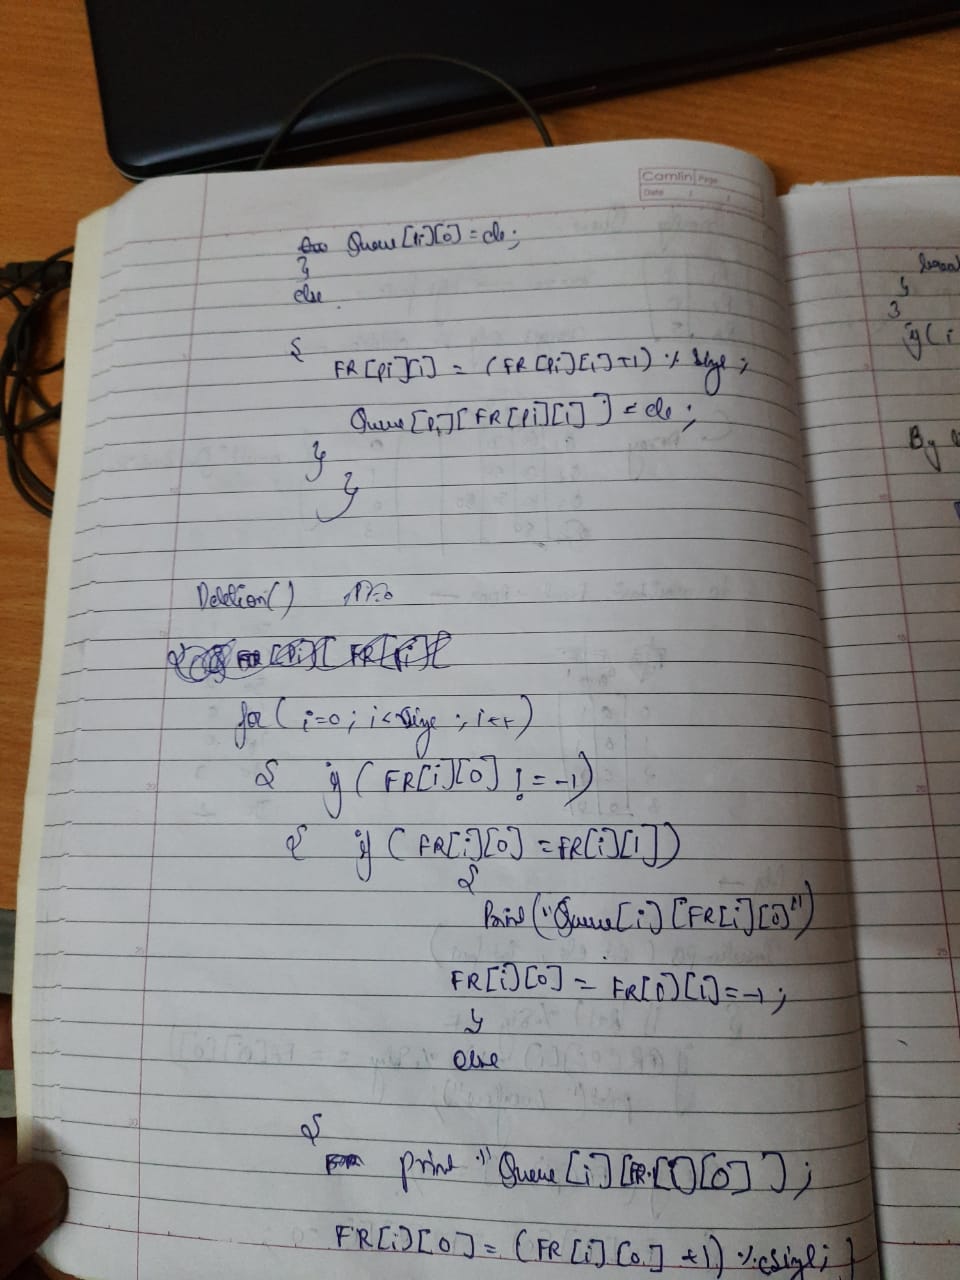 Camlin Page
Date / /
Queue [pi][0] = ele;
}
else
{
FR[pi][1] = (FR[pi][1]+1) % size;
Queue[pi][FR[pi][1]] = ele;
}
}
Deletion()
for (i=0; i<size; i++)
{ if (FR[i][0] != -1)
{ if (FR[i][0] = FR[i][1])
{
Print ("Queue[i][FR[i][0]")
FR[i][0] = FR[i][1] = -1;
}
else
{
print "Queue[i][FR[i][0]];
FR[i][0] = (FR[i][0]+1) % size; }
}
3
if (i
By